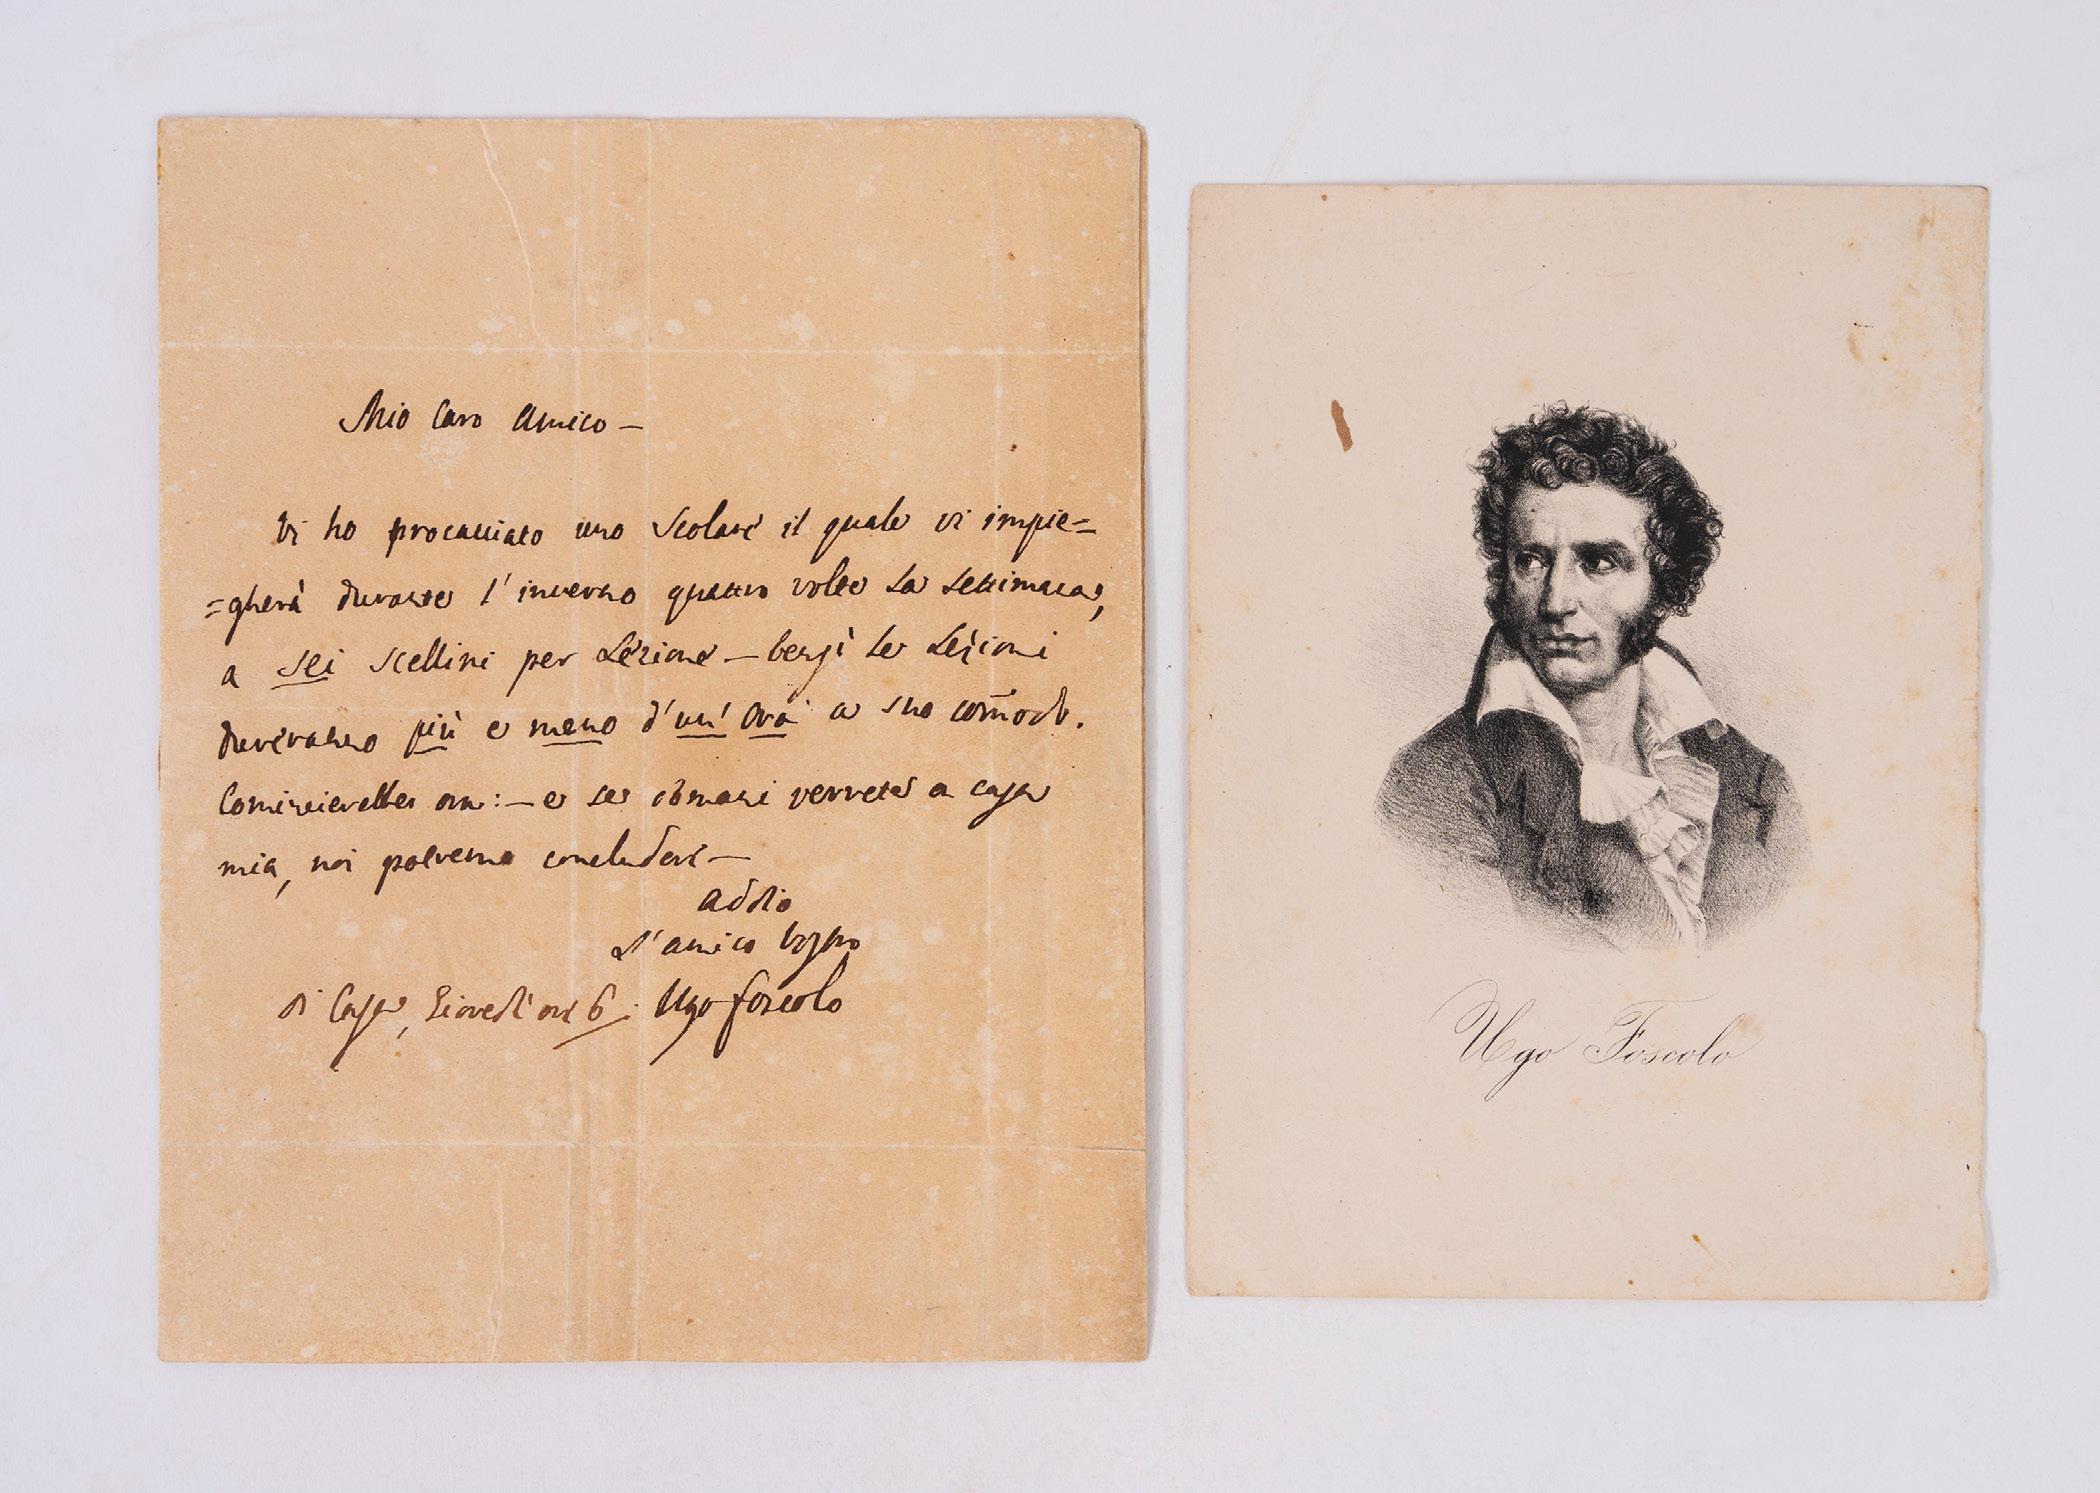 Mio Caro Amico —
Vi ho procacciato uno Scolare il quale vi impie=
=gherà durante l'inverno quattro volte la settimana,
a sei scellini per Lezione — le Lezioni
dureranno più e meno d'un' ora a suo com̄odo.
Comincierebbe ora: — e se domani verrete a casa
mia, noi potremo concludere —
addio
L'amico vostro
di Casa, Giovedì ore 6. Ugo Foscolo
Ugo Foscolo